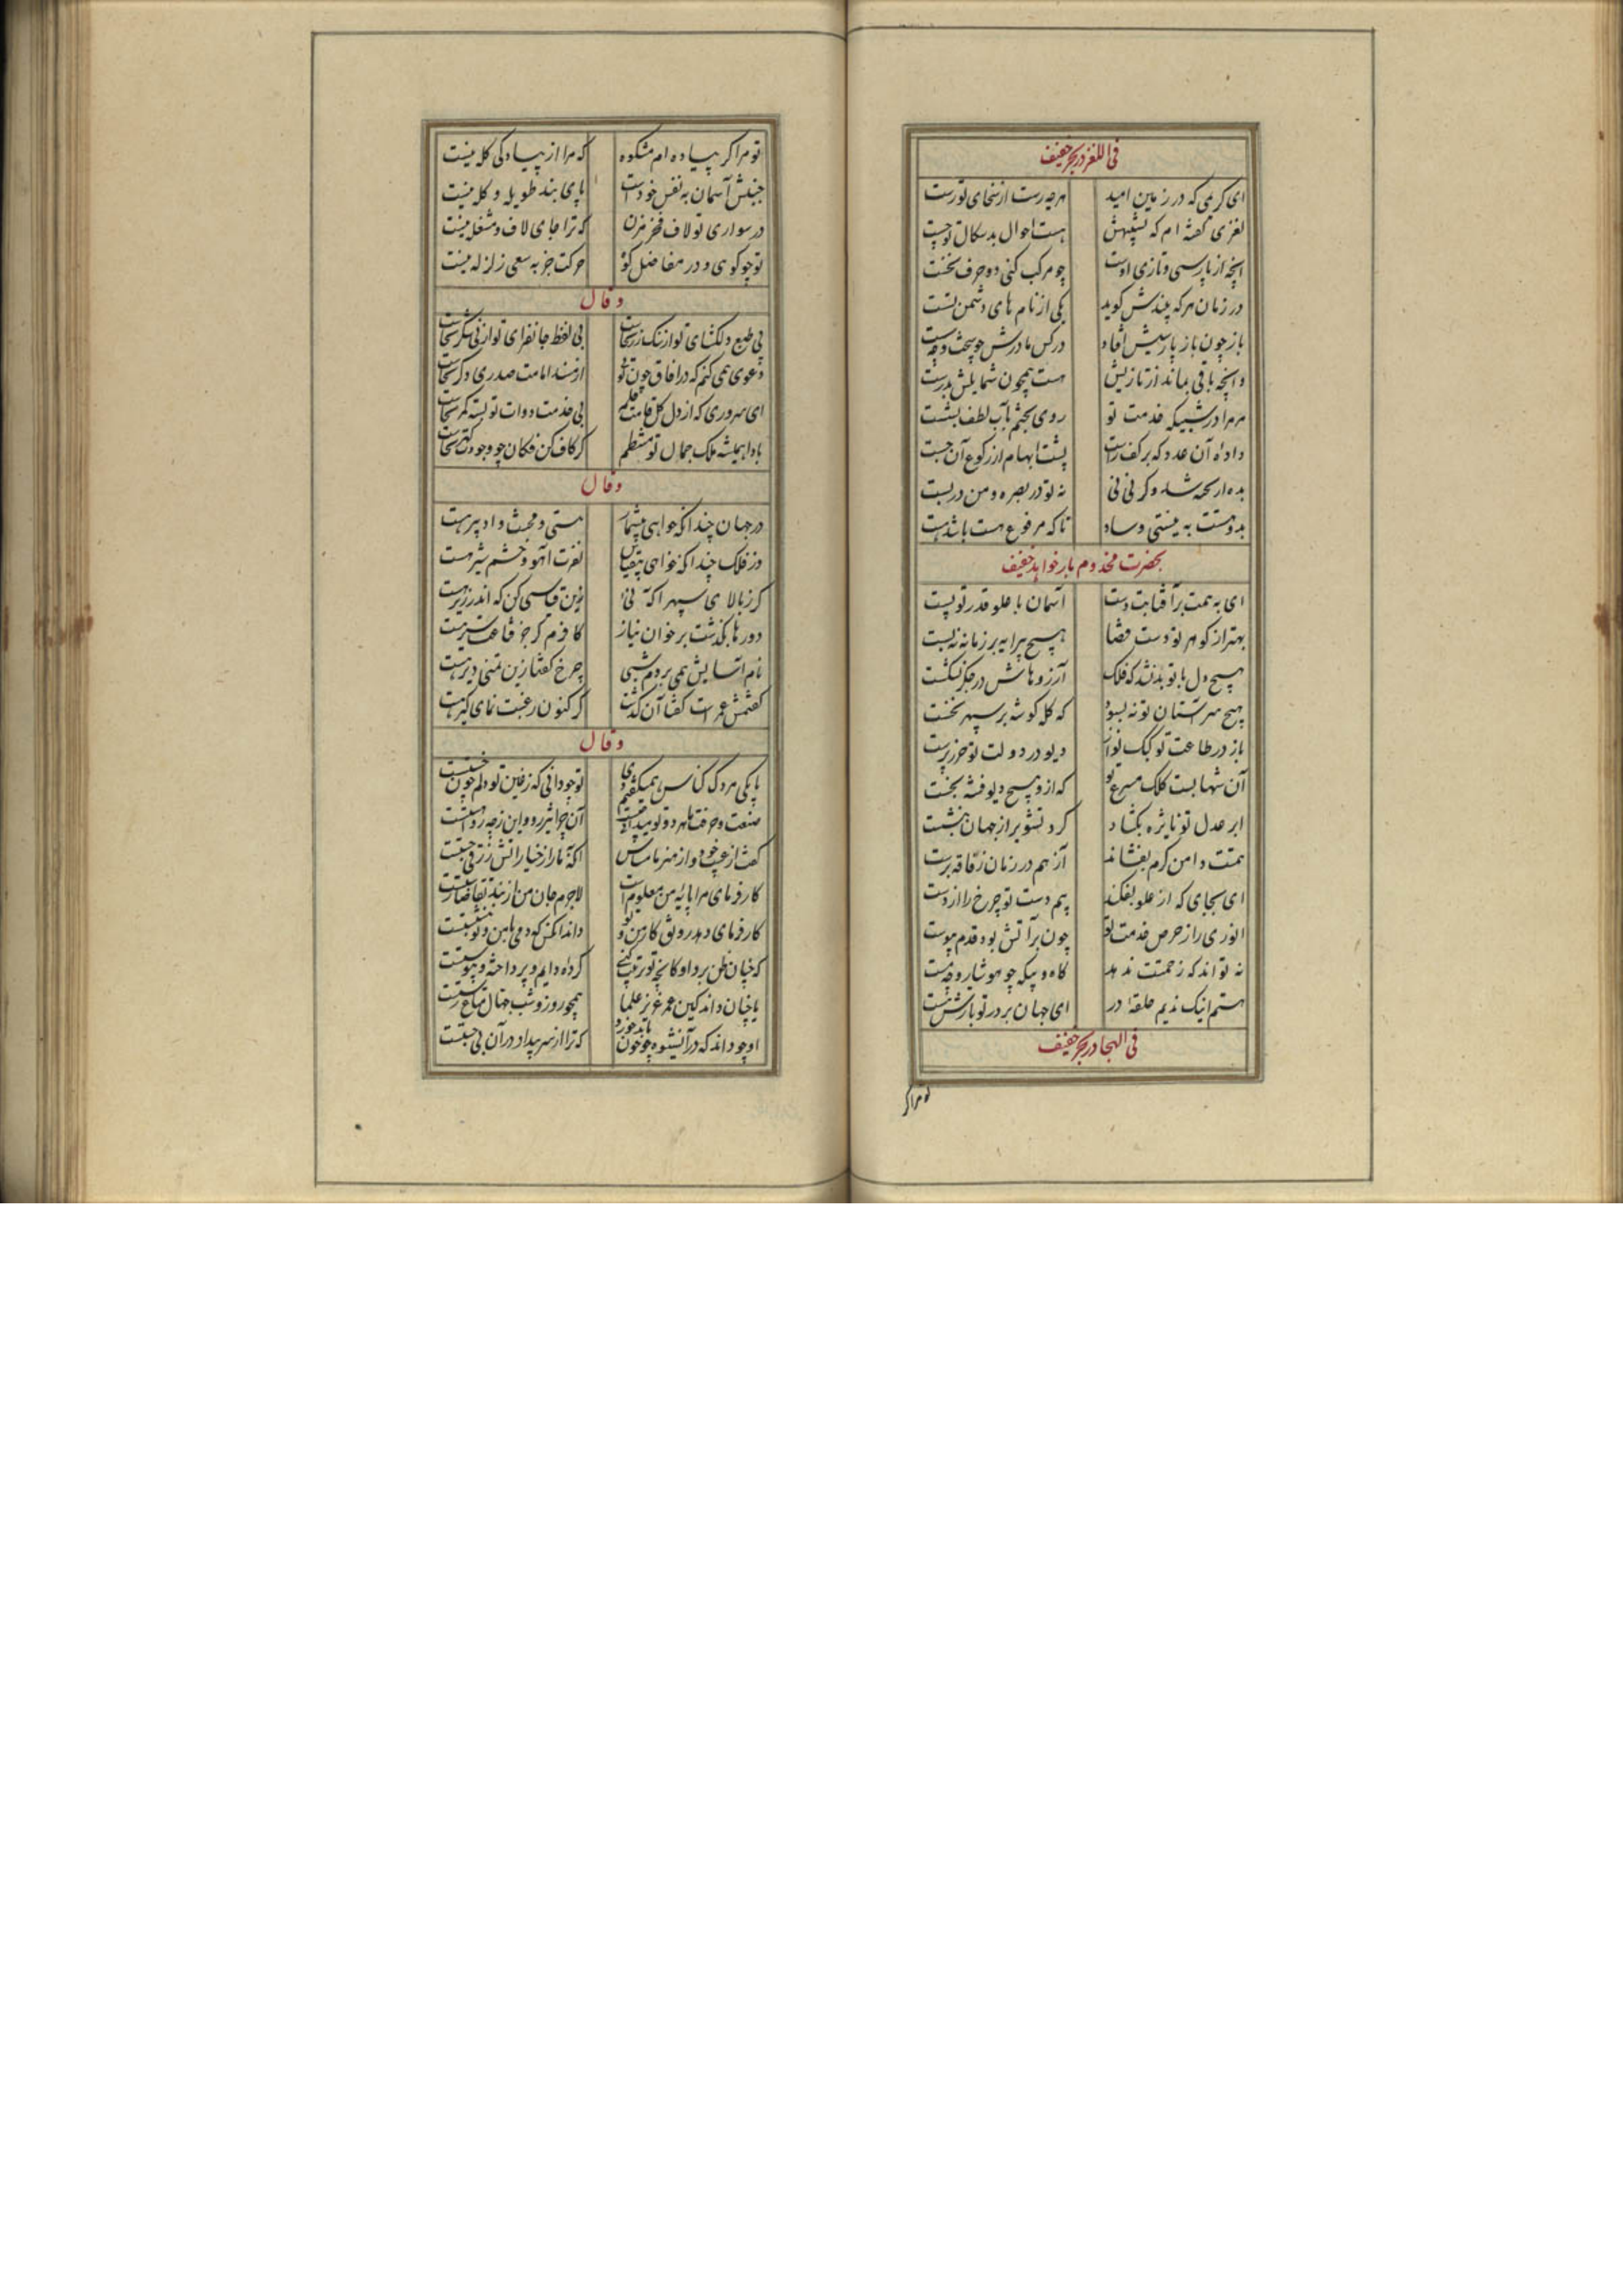 فی اللغز در بحر خفیف
ای کریمی که در زمین امید هرچه رست از سخای تو رست
لغزی گفته‌ام که تشبیهش هست احوال بدسکال تو چست
آنچه از پارسی و تازی اوست چو مرکب کنی دو حرف نخست
در زمان هر که بیندش کوید یکی از نام های دشمن تست
باز چون باز پارسیش افتاد در کس مادرش
و آنچه باقی بماند از تازیش هست همچون شمایلش بدرست
مر مرا در شبیکه خدمت تو روی بختم بآب لطف بشست
داده‌ٔ آن عدد که بر کف راست پشت ابهام از رکوع آن جست
بده ار پخته شد و کر نی نی نه تو در بصره و من در بست
بدو هست به نیستی و ساد تا که مرفوع هست باشد هست
بحضرت مخدوم بار خواهد خفیف
ای به همت بر آفتابت دست آسمان با علو قدر تو پست
بهتر از کوهر تو دست قضا هیچ پیرایه بر زمانه نبست
هیچ دل با تو بد نشد که فلک آرزوهاش در جکر نشکست
هیچ سر آستان تو نه بسود که کله کوشه بر سپهر نشست
باز در طاعت تو کبک نواز دیو در دولت تو حرز پرست
آن شهابست کلک مسرع تو که ازو هیچ دیو فتنه نجست
ابر عدل تو نایژه بکشاد کرد تشویر از جهان بنشست
همتت دامن کرم بفشاند آز هم در زمان ز فاقه برست
ای بجای که از علو بفکند بیم دست تو چرخ را از دست
انوری را ز حرص خدمت تو چون بر آتش بود قدم پیوست
نه تواند که زحمتت ندهد کاه و بیکه چو هوشیار و چه مست
هستم اینک ندیم حلقهٔ در ای جهان بر در تو بارش هست
فی الهجا در بحر خفیف
تو مرا کر
تو مرا کر پیاده‌ام مشکوه که مرا از پیادکی کله نیست
جنبش آسمان به نفس خودست پای بند طویله و کله نیست
در سواری تو لاف فخر مزن که ترا جای لاف و مشغله نیست
تو چو کوهی و در مفاصل کوه حرکت جز به سعی زلزله نیست
و قال
بی طبع دلکشای تو از تنک زر سخاست بی لفظ جانفزای تو از نی شکر سخاست
دعوی همی کنم که در آفاق چون تو از مسند امامت صدری دکر سخاست
ای سروری که از دل کل قامت قلم بی خدمت دوات تو بسته کمر سخاست
بادا همیشه ملک جمال تو منتظم کز کاف کن فکان چو وجودت کهر سخاست
و قال
در جهان چندانکه خواهی بیشمار مستی و محنت و ادبیر هست
در فلک چندانکه خواهی بی‌قیاس نفرت آهو و خشم شیر هست
کر ز بالای سپهر آکه نی زین قیاسی کن که اندر زیر هست
دورها بکذشت بر خوان نیاز کافرم کر جز قناعت سیر هست
نام آسایش همی بردم شبی چرخ کفتا زین تمنی دیر هست
کفتمش عمرست کفتا آن کذشت کر کنون رغبت نمای کیر هست
و قال
با یکی مردک کناس همی کفتم دی تو چه دانی که ز غبن تو دلم چون خستست
صنعت و حرفت ما هر دو تو میدانی چیست آن چرا بیش رو و این ز چه رو آهستست
کفت از عیب خود و از هنر ما مشناس
کارفرمای مرا پایهٔ من معلومست لاجرم جان من از بند تقاضا رستست
کارفرمای دهد رونق کار من و تو
که چنان ظن برد او کانچه تو ترتیب کنی کرده دایم و پرداخته و پیوستست
یا چنان داند کین عمر عزیز علما همچو روز و شب جهال متاع رستست
او چه داند که در آن شیوه چه خون باید خورد که ترا از سر پیداد در آن بی‌جستست